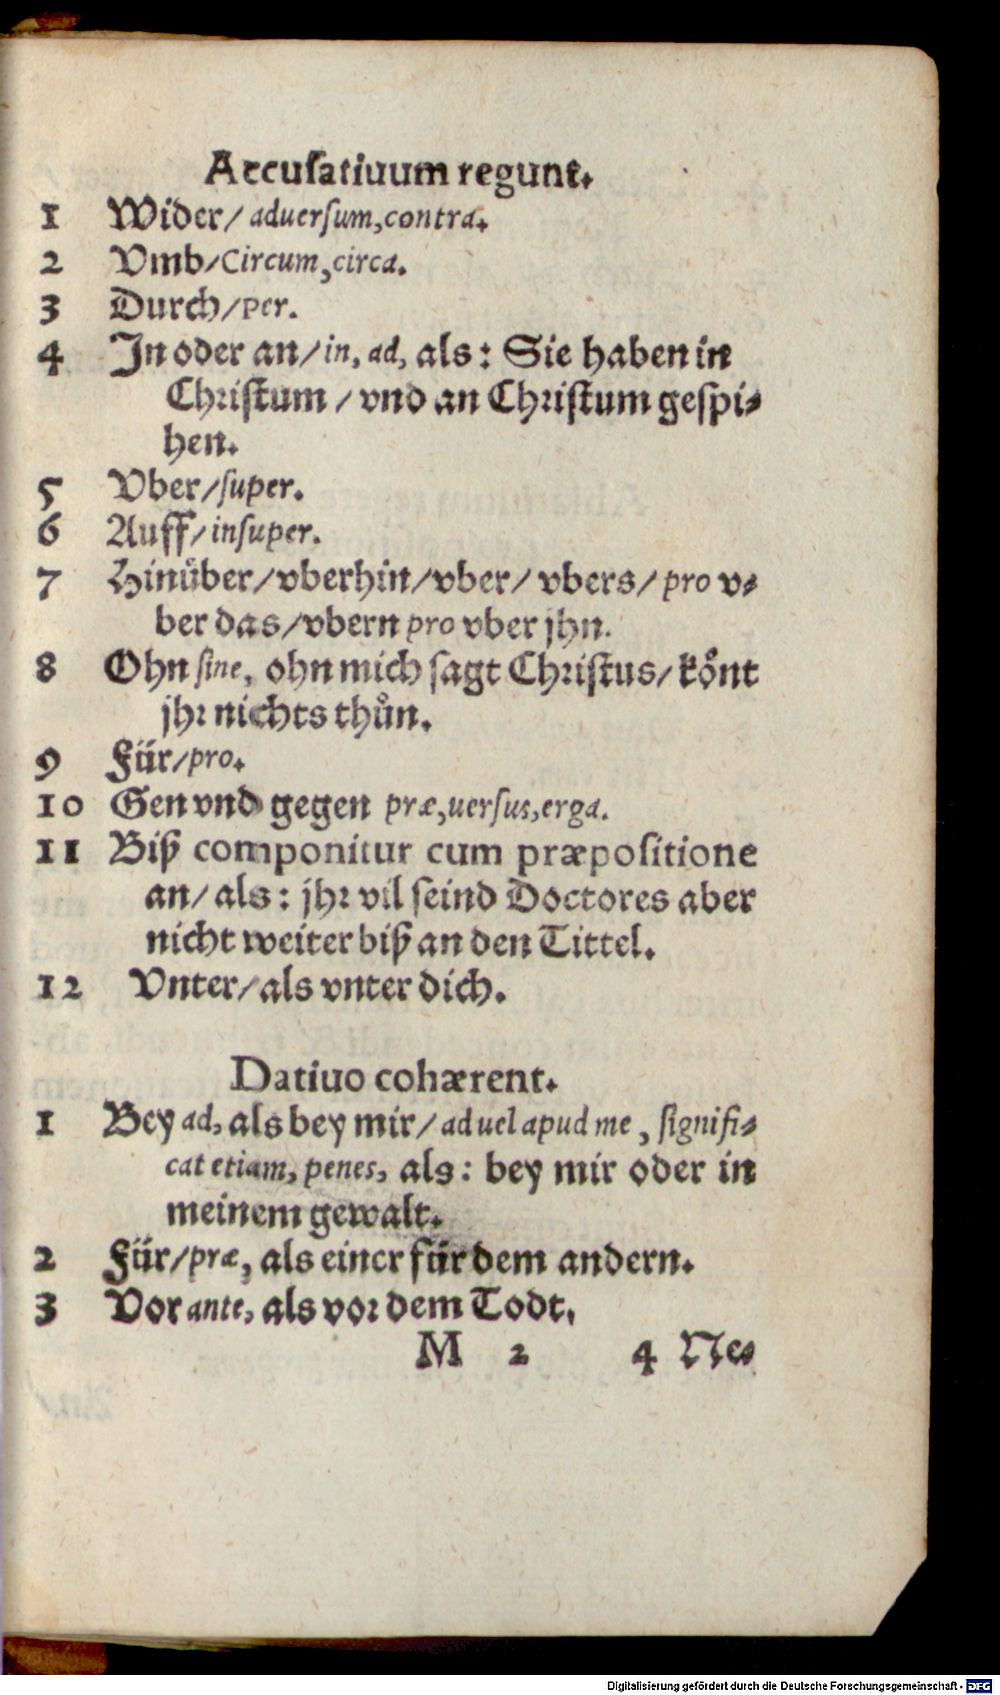 Accuſatiuum regunt.
1 Wider/ aduerſum, contra.
2 Vmb/Circum, circa.
3 Durch/per.
4 In oder an/in, ad, als: Sie haben in
Chriſtum / vnd an Chriſtum geſpi⸗
hen.
5 Vber/ſuper.
6 Auff/inſuper.
7 Hinüber/vberhin/vber/ vbers/ pro v⸗
ber das/vbern pro vber jhn.
8 Ohn ſine, ohn mich ſagt Chriſtus/ koͤnt
jhr nichts thůn.
9 Für/pro.
10 Gen vnd gegen præ,uerſus,erga.
11 Biß componitur cum præpoſitione
an/ als: jhr vil ſeind Doctores aber
nicht weiter biß an den Tittel.
12 Vnter/als vnter dich.
Datiuo cohærent.
1 Bey ad, als bey mir/ ad uel apud me, ſignifi⸗
cat etiam, penes, als: bey mir oder in
meinem gewalt.
2 Für/præ, als einer für dem andern.
3 Vor ante, als vor dem Todt.
M 2 4 Ne⸗
Digitalisierung gefördert durch die Deutsche Forschungsgemeinschaft - DFG